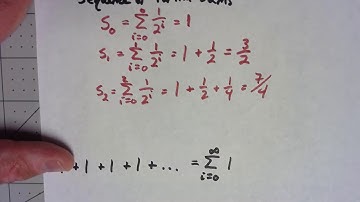 Sequence of Partial Sums
S₀ = ∑_{i=0}^{0} 1/2^i = 1
S₁ = ∑_{i=0}^{1} 1/2^i = 1 + 1/2 = 3/2
S₂ = ∑_{i=0}^{3} 1/2^i = 1 + 1/2 + 1/4 = 7/4
+ 1 + 1 + 1 + ... = ∑_{i=0}^{∞} 1